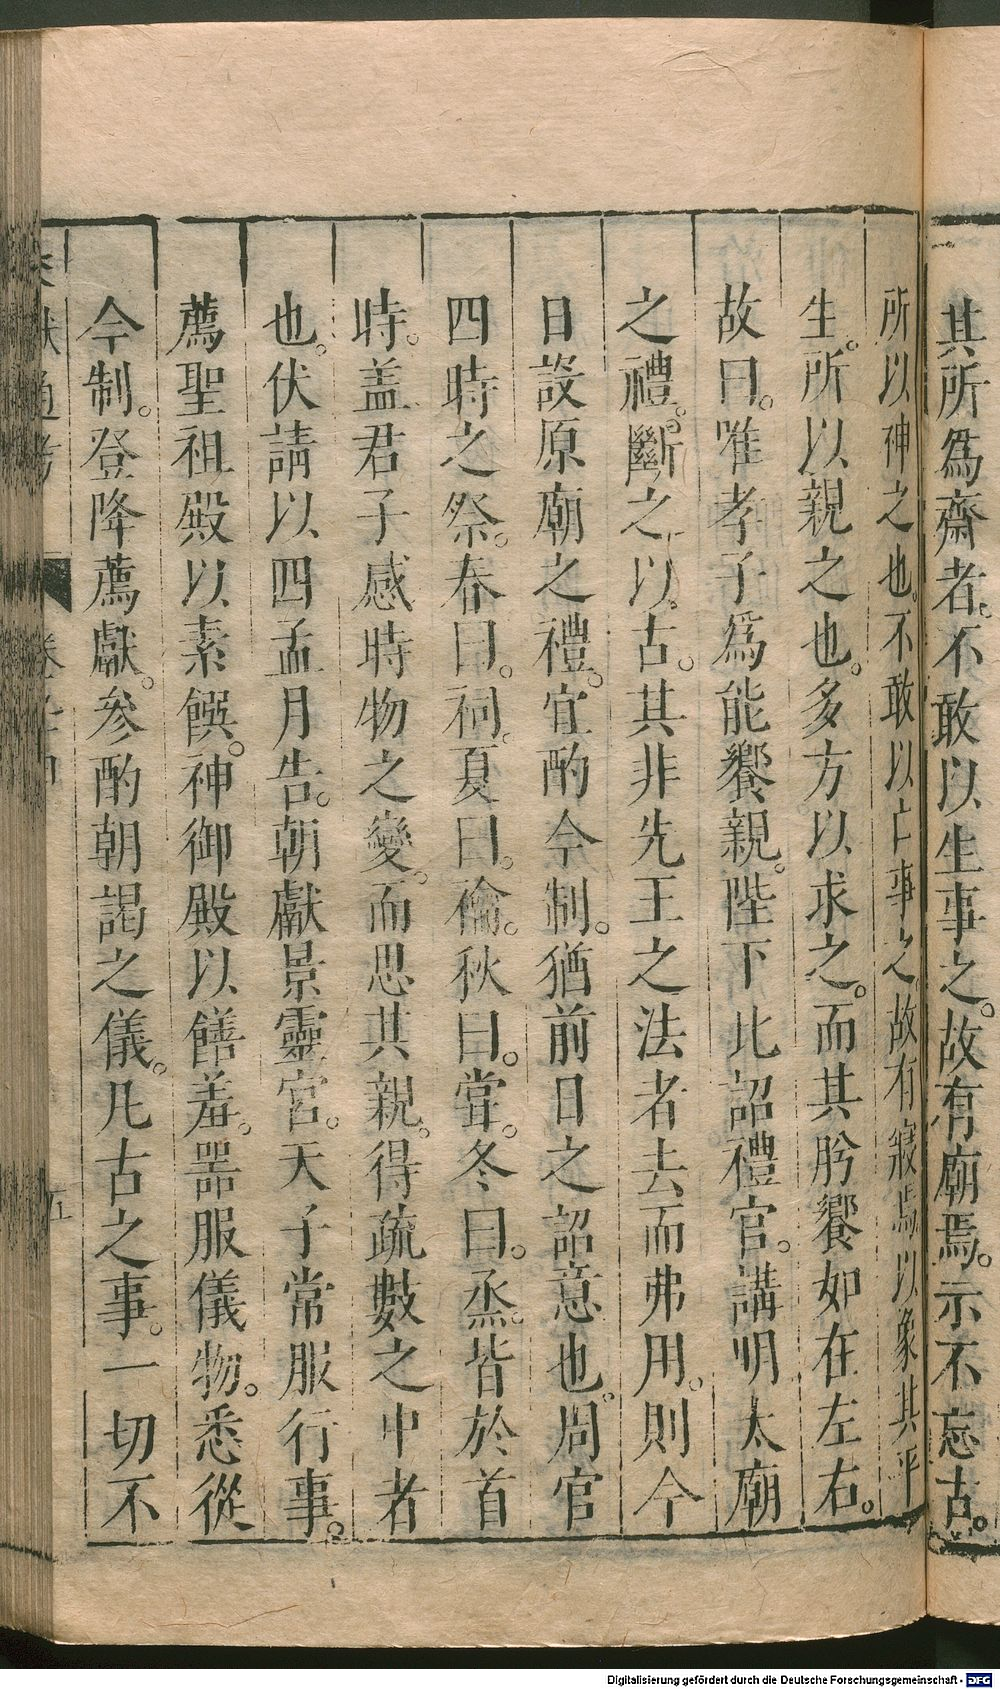 其所爲齋者。不敢以生事之。故有廟焉。示不忘古。
所以神之也。不敢以亡事之。故有寢焉。以象其平
生。所以親之也。多方以求之。而其肸饗如在左右。
故曰。唯孝子爲能饗親。陛下比詔禮官。講明太廟
之禮。斷之以古。其非先王之法者去而弗用。則今
日設原廟之禮。宜酌今制。猶前日之詔意也。周官
四時之祭。春曰。祠。夏曰。禴。秋曰。嘗。冬曰。烝。皆於首
時。盖君子感時物之變。而思其親。得疏數之中者
也。伏請以四孟月告。朝獻景靈宮。天子常服行事。
薦聖祖殿以素饌。神御殿以饍羞。器服儀物。悉從
今制。登降薦獻。參酌朝謁之儀。凡古之事。一切不
通考
五
Digitalisierung gefördert durch die Deutsche Forschungsgemeinschaft - DFG